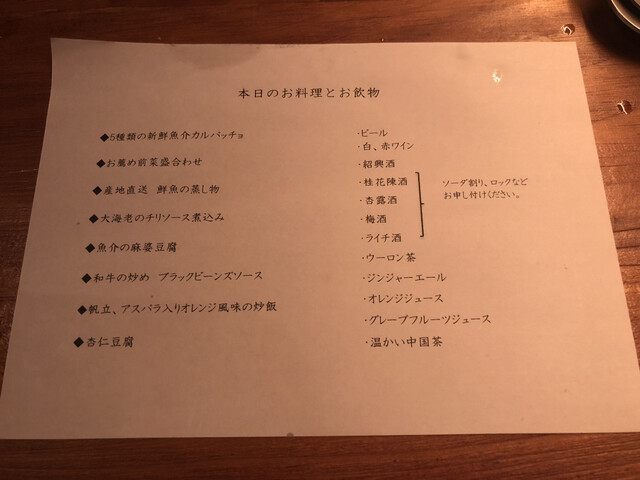 本日のお料理とお飲物
◆5種類の新鮮魚介カルパッチョ
◆お薦め前菜盛合わせ
◆産地直送 鮮魚の蒸し物
◆大海老のチリソース煮込み
◆魚介の麻婆豆腐
◆和牛の炒め ブラックビーンズソース
◆帆立、アスパラ入りオレンジ風味の炒飯
◆杏仁豆腐
・ビール
・白、赤ワイン
・紹興酒
・桂花陳酒
・杏露酒
・梅酒
・ライチ酒
ソーダ割り、ロックなど
お申し付けください。
・ウーロン茶
・ジンジャーエール
・オレンジジュース
・グレープフルーツジュース
・温かい中国茶